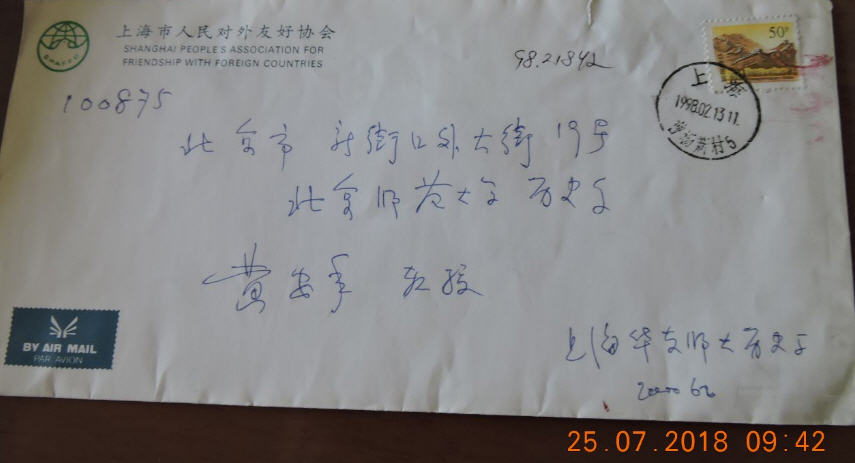 上海市人民对外友好协会
SHANGHAI PEOPLE'S ASSOCIATION FOR
FRIENDSHIP WITH FOREIGN COUNTRIES
SHAFFC
50分
98.2.18收
上海
1998.02.13 11
新村5
100875
北京市 新街口外大街19号
北京师范大学 历史系
黄安年 教授
BY AIR MAIL
PAR AVION
上海华东师大历史系
200062
25.07.2018 09:42